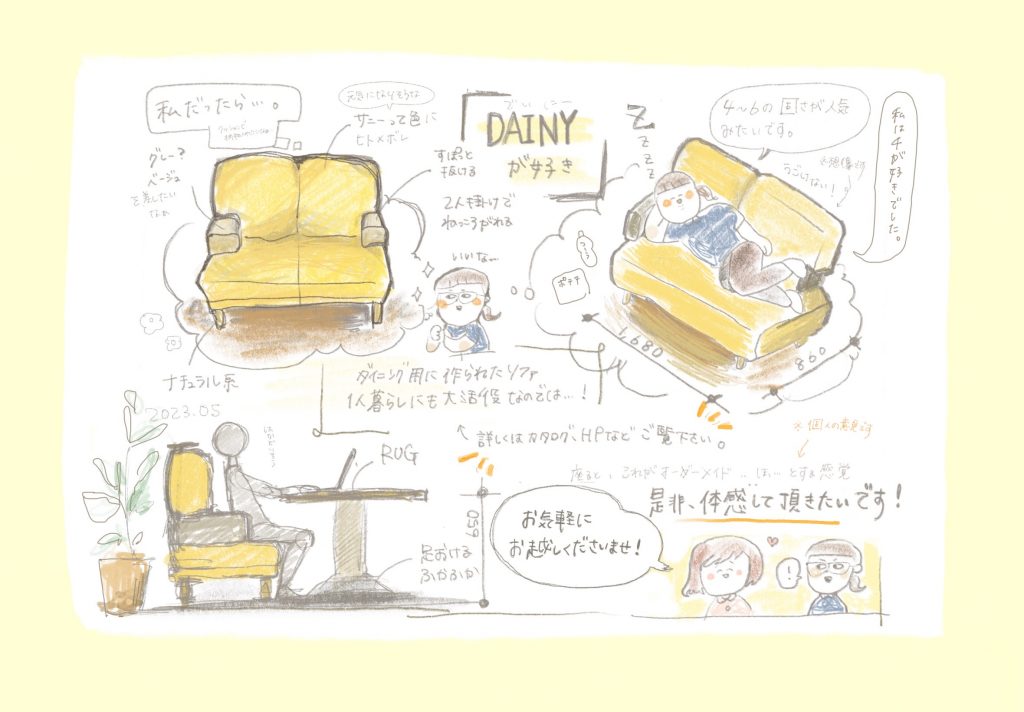 私だったら…。
元気になりそうな
サニーって色に
ヒトメボレ
でいにー
DAINY
が好き
グレー?
ベージュ
を差したい
なぁ
すぽっと
抜ける
2人も掛けで
ねっころがれる
いいなー
ナチュラル系
2023.05
Z
Z
Z
Z
4〜6の固さが人気
みたいです。
私はチが好きでした。
うごけない!
※想像です
ポテチ
1,680
860
ダイニング用に作られたソファ
1人暮らしにも大活役なのでは…!
詳しくはカタログ、HPなどご覧下さい。
※個人の意見です
座ると、これがオーダーメイド…ほぅ…とする感覚
是非、体感して頂きたいです!
RUG
650
足おける
ふかふか
お気軽に
お越しくださいませ!
!